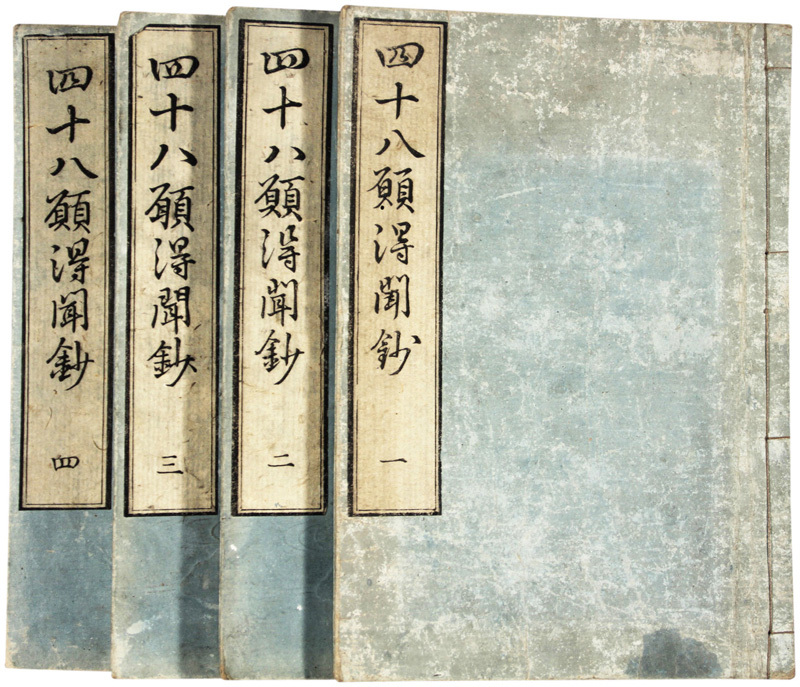 四十八願得聞鈔 一
四十八願得聞鈔 二
四十八願得聞鈔 三
四十八願得聞鈔 四